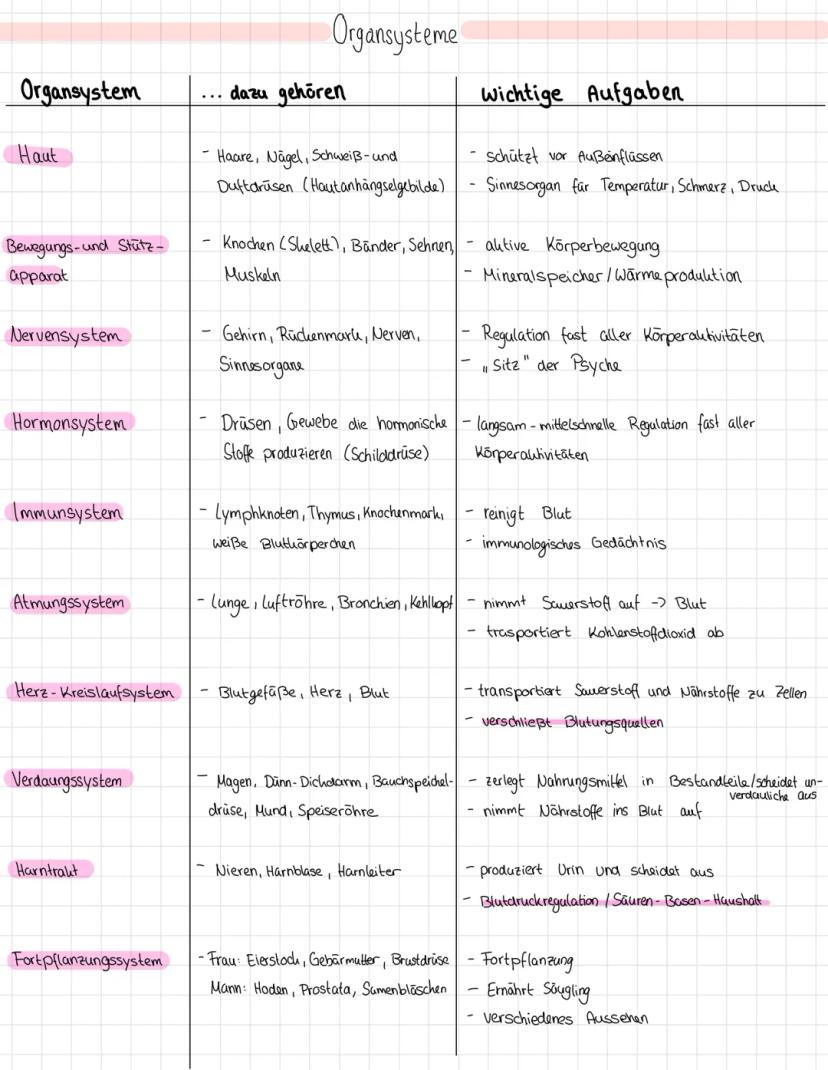 Organsysteme
Organsystem
... dazu gehören
wichtige Aufgaben
Haut
- Haare, Nägel, Schweiß- und
Duftdrüsen (Hautanhängselgebilde)
- schützt vor Außeinflüssen
- Sinnesorgan für Temperatur, Schmerz, Druck
Bewegungs- und Stütz-
apparat
- Knochen (Skelett), Bänder, Sehnen,
Muskeln
- aktive Körperbewegung
- Mineralspeicher / Wärmeproduktion
Nervensystem
- Gehirn, Rückenmark, Nerven,
Sinnesorgane
- Regulation fast aller Körperaktivitäten
- „Sitz" der Psyche
Hormonsystem
- Drüsen, Gewebe die hormonische
Stoffe produzieren (Schilddrüse)
- langsam - mittelschnelle Regulation fast aller
Körperaktivitäten
Immunsystem
- Lymphknoten, Thymus, Knochenmark,
weiße Blutkörperchen
- reinigt Blut
- immunologisches Gedächtnis
Atmungssystem
- Lunge, Luftröhre, Bronchien, Kehlkopf
- nimmt Sauerstoff auf -> Blut
- trasportiert Kohlenstoffdioxid ab
Herz-Kreislaufsystem
- Blutgefäße, Herz, Blut
- transportiert Sauerstoff und Nährstoffe zu Zellen
- verschließt Blutungsquellen
Verdaungssystem
- Magen, Dünn-Dickdarm, Bauchspeichel-
drüse, Mund, Speiseröhre
- zerlegt Nahrungsmittel in Bestandteile/scheidet un-
verdauliche aus
- nimmt Nährstoffe ins Blut auf
Harntrakt
- Nieren, Harnblase, Harnleiter
- produziert Urin und scheidet aus
- Blutdruckregulation / Säuren-Basen-Haushalt
Fortpflanzungssystem
- Frau: Eierstock, Gebärmutter, Brustdrüse
Mann: Hoden, Prostata, Samenbläschen
- Fortpflanzung
- Ernährt Säugling
- verschiedenes Aussehen